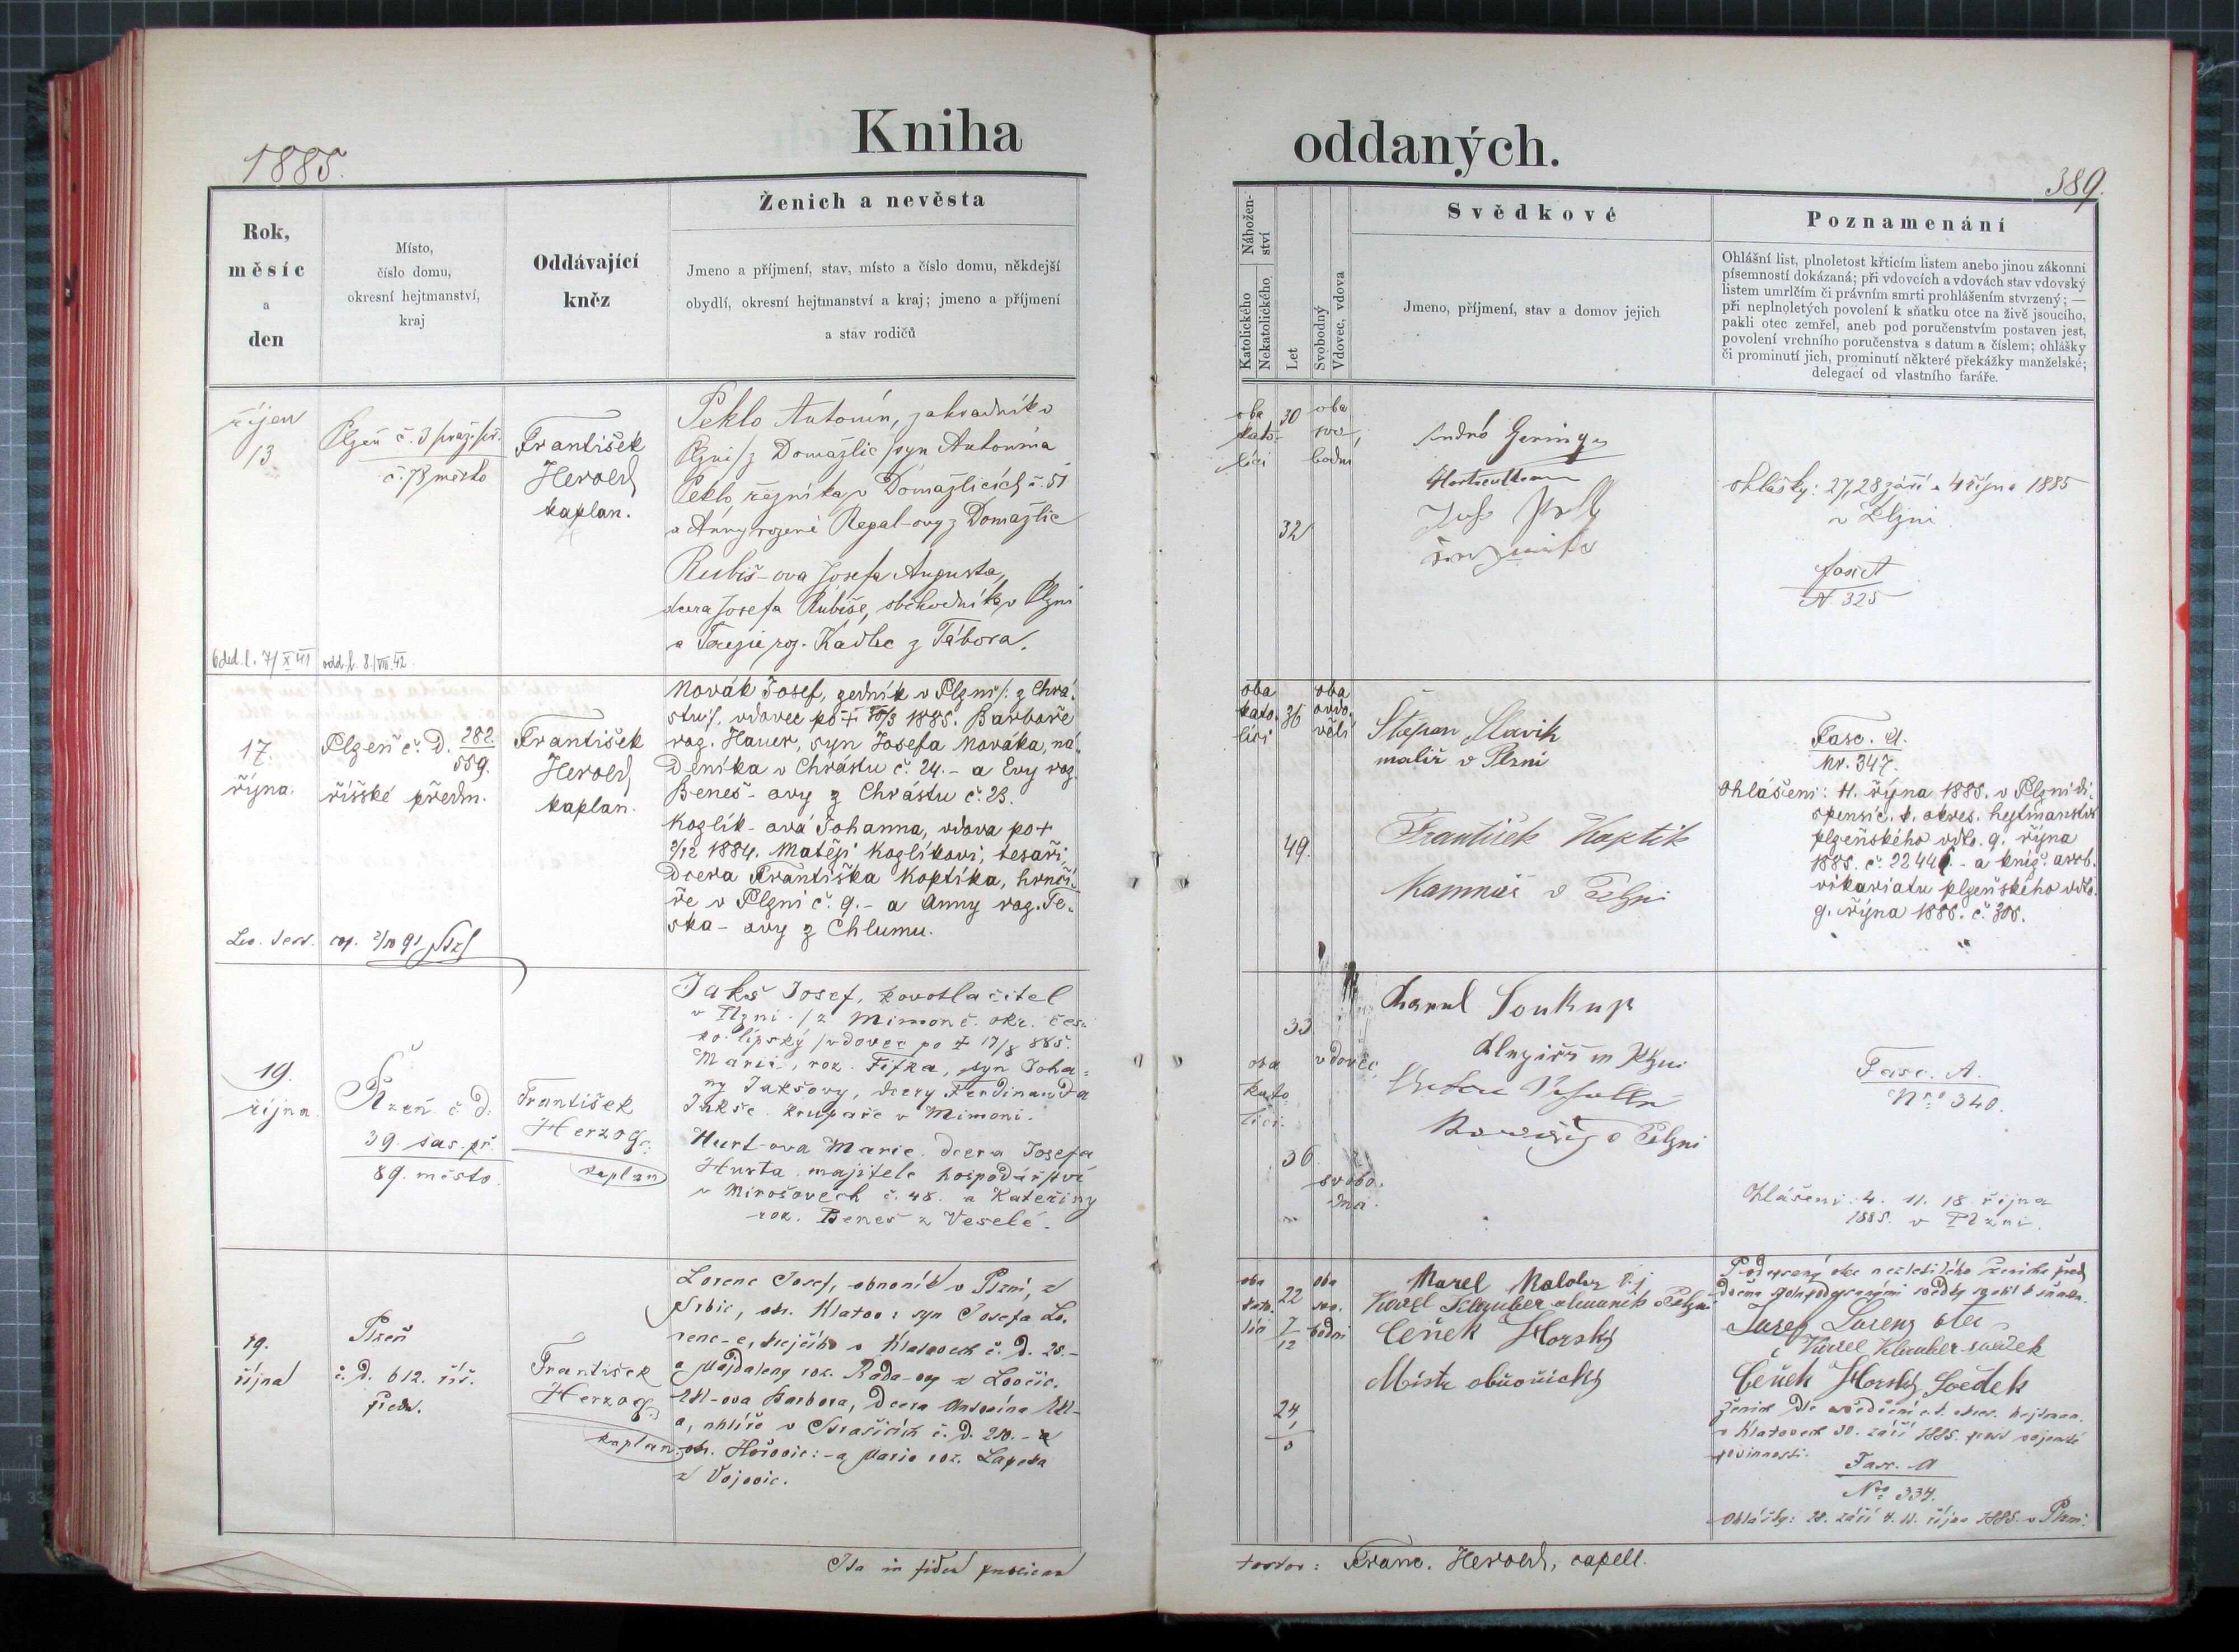 Kniha
oddaných.
1885.
389.
Rok,
měsíc
a
den
Místo,
číslo domu,
okresní hejtmanství,
kraj
Oddávající
kněz
Ženich a nevěsta
Jmeno a příjmení, stav, místo a číslo domu, někdejší
obydlí, okresní hejtmanství a kraj; jmeno a příjmení
a stav rodičů
Nábožen-
ství
Katolického
Nekatolického
Let
Svobodný
Vdovec, vdova
Svědkové
Jmeno, příjmení, stav a domov jejich
Poznamenání
Ohlášní list, plnoletost křticím listem anebo jinou zákonní
písemností dokázaná; při vdovcích a vdovách stav vdovský
listem umrlčím či právním smrti prohlášením stvrzený; —
při neplnoletých povolení k sňatku otce na živě jsoucího,
pakli otec zemřel, aneb pod poručenstvím postaven jest,
povolení vrchního poručenstva s datum a číslem; ohlášky
či prominutí jich, prominutí některé překážky manželské;
delegací od vlastního faráře.
říjen
13
Plzeň č. 3 praž. př.
město
František
Herold
kaplan.
Peklo Antonín, zahradník v
Plzni /z Domažlic/ syn Antonína
Peklo, řezníka v Domažlicích č. 51
a Anny rozené Regal-ovy z Domažlic
Rubiš-ova Josefa Augusta,
dcera Josefa Rubiše, obchodníka v Plzni
a Terezie roz. Kadlec z Tábora.
oba
kato-
líci
30
oba
svo-
bodni
32
ohlášky: 27, 28 září a 4 října 1885
v Plzni
fasc A
N. 325
17.
října.
Plzeň č. D. 282.
559.
říšské předm.
František
Herold
kaplan.
Novák Josef, zedník v Plzni /: z Chrá-
stu/, vdovec po + 1885. Barboře
roz. Hauer, syn Josefa Nováka, ná-
Deníka v Chrástu č. 24. - a Evy roz.
Beneš-ovy z Chrástu č. 23.
Kozlík-ová Johanna, vdova po +
1884. Matěji Kozlíkovi, tesaři,
Dcera Františka Koptíka, hrnčí-
ře v Plzni č. 9. - a Anny roz. Te-
ska-ovy z Chlumu.
oba
kato-
líci
36
oba
ovdo-
věli
49.
Štěpan Slavik
malíř v Plzni
František Koptik
Kamnář v Plzni
Fasc. A.
Nr. 347.
Ohlášeni: 11. října 1885. v Plzni di-
spensí c. k. okres. hejtmanství
plzeňského ddto. 9. října
1885. č. - a kníž. arcib.
vikariatu plzeňského ddto.
9. října 1885. č. 305.
19.
října.
Plzeň č. D:
39. sas. př.
89. město.
František
Herzog.
kaplan
Jakš Josef, kovotlačitel
v Plzni /z Mimoně. okr. čes-
ko-lípský /vdovec po + 17/8 885.
Marii, roz. Fifka, syn Joha-
ny Jakšovy, dcery Ferdinanda
Jakše krupaře v Mimoni.
Hurt-ova Marie dcera Josefa
Hurta majitele hospodářství
v Mirošovech č. 48. a Kateřiny
roz. Beneš z Veselé.
33
oba
kato
líci.
vdovec
36
svobo-
dná.
Karel Soukup
v Plzni
Fasc. A.
Nro 340.
Ohlášeni: 4. 11. 18 října
1885. v Plzni.
19.
října
Plzeň
č. D. 612. říš.
předm.
František
Herzog
kaplan.
Lorenc Josef, obuvník v Plzni, z
Srbic, okr. Klatov: syn Josefa Lo-
renc-e, krejčího v Klatovech č. D. 25.-
a Majdaleny roz. Rada-ovy z Lovčic.
-ova Barbora, Dcera Antonína
a, uhlíře v Strašicích č. D. 210. - a
okr. Hořovic: - a Marie roz.
z Vojovic.
oba
kato-
líci
22
7
12
oba
svo-
bodni
24
Karel Klauber obuvník v Plzni
Čeňek Horský
Mistr obuvnický
Josef Lorenz otec
Karel Klauber svědek
Čeňek Horský Svědek
v Klatovech 30. září 1885. prost vojenské
povinnosti.
Fasc. A
Nro 334.
Ohlášky: 28. září 4. 11. října 1885. v Plzni.
Ita in fidem publicam
testor: Franc. Herold, capell.